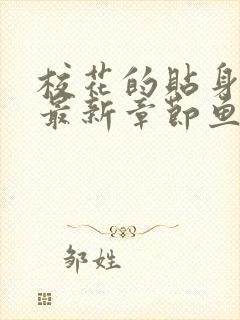 校花的贴身
最新章节鱼
邹姓